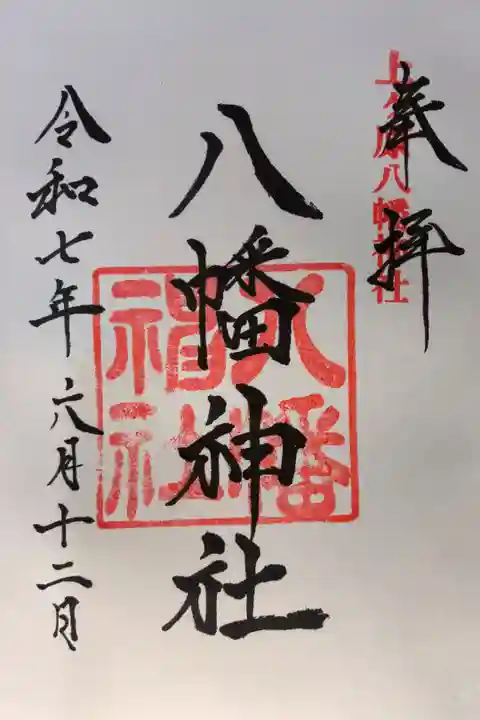 奉拝
上ヶ原八幡神社
八幡神社
八幡神社
令和七年六月十二日